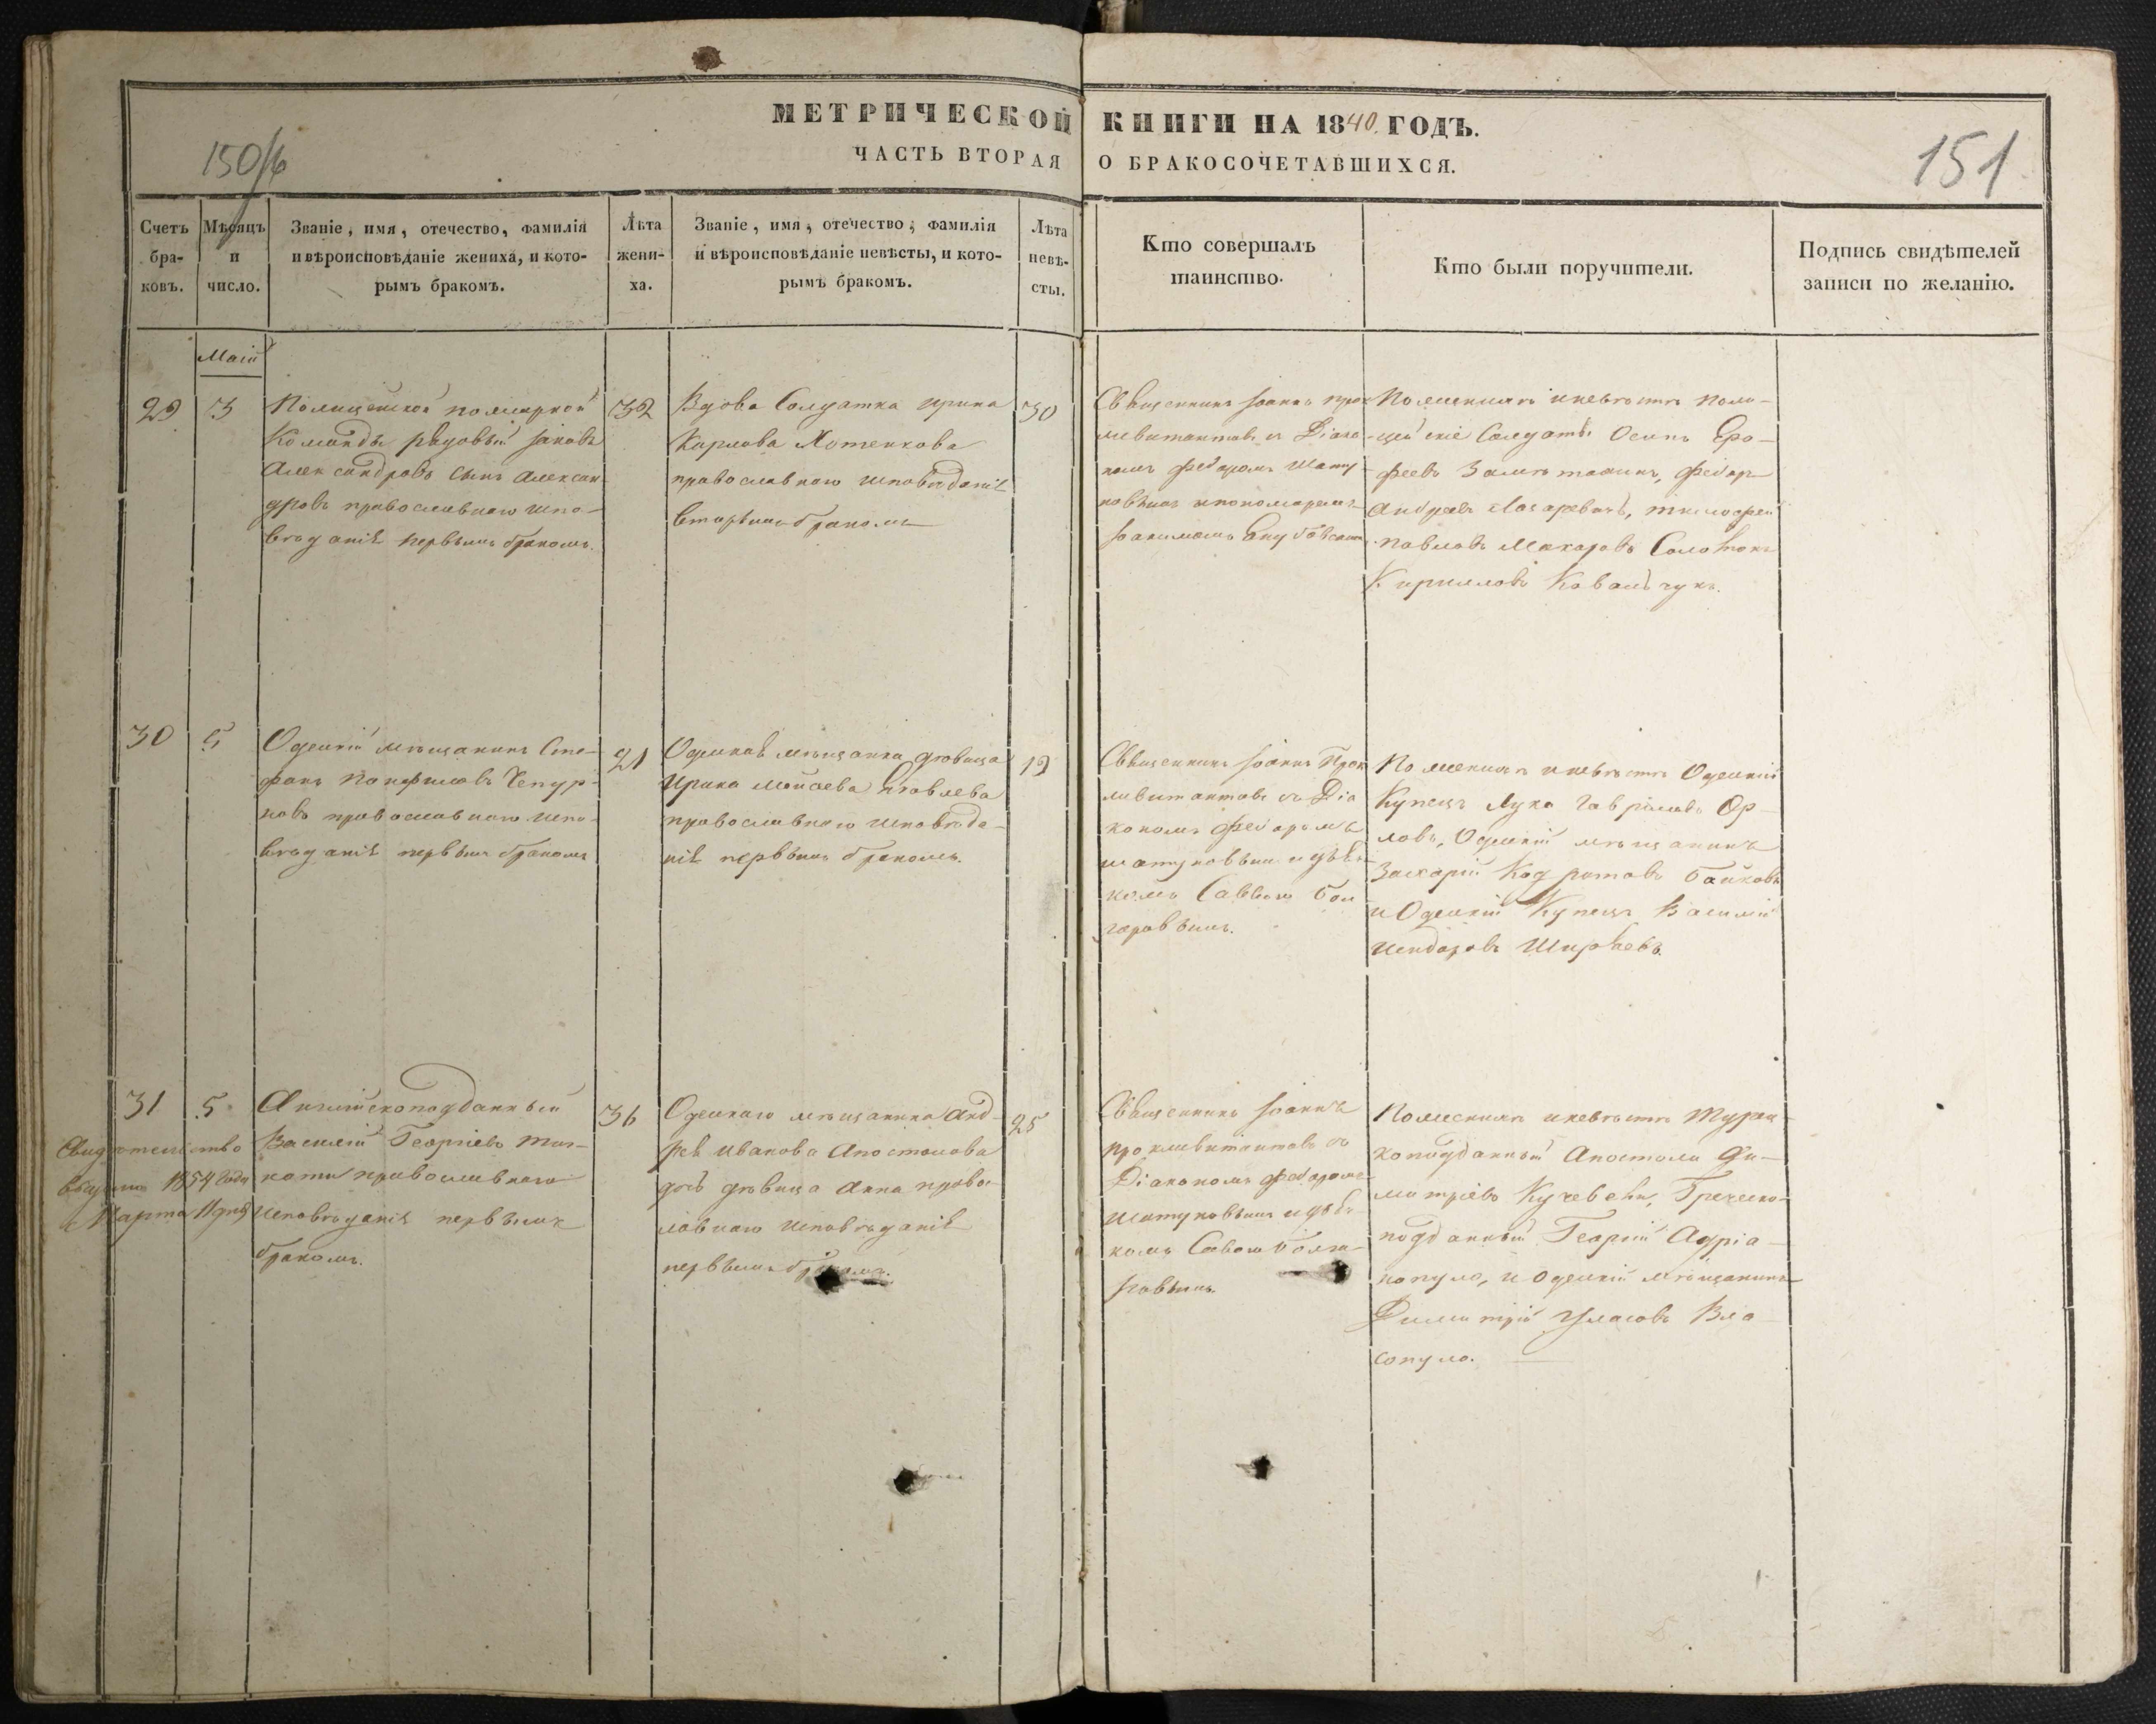 МЕТРИЧЕСКОЙ КНИГИ НА 1840 ГОДЪ.
ЧАСТЬ ВТОРАЯ О БРАКОСОЧЕТАВШИХСЯ.
150/б
151
Счетъ
бра-
ковъ.
Мѣсяцъ
и
число.
Званіе, имя, отечество, фамилія
и вѣроисповѣданіе жениха, и кото-
рымъ бракомъ.
Лѣта
жени-
ха.
Званіе, имя, отечество, фамилія
и вѣроисповѣданіе невѣсты, и кото-
рымъ бракомъ.
Лѣта
невѣ-
сты.
Кто совершалъ
таинство.
Кто были поручители.
Подпись свидѣтелей
записи по желанію.
Маій
29
3
Полицейской пожарной
Команды рядовый Іаковъ
Александровъ сынъ Алексан
дровъ православнаго испо-
вѣданія первымъ бракомъ.
32
Вдова Солдатка Ирина
Карпова Хотенкова
православнаго исповѣданія
вторымъ бракомъ
30
Священникъ Іоаннъ Прок
ливитантовъ съ Діако
номъ Федоромъ Шату
новымъ и пономаремъ
По женихѣ и невѣстѣ поли-
цейскіе Солдаты Осипъ Еро-
феевъ Федоръ
Андреевъ Тимофей
Павловъ Макаровъ
Кирилловъ Ковальчукъ.
30
5
Одескій мѣщанинъ Сте-
фанъ Панфиловъ Чепур-
новъ православнаго испо-
вѣданія первымъ бракомъ
21
Одеская мѣщанка дѣвица
Ирина Моисеева Яковлева
православнаго исповѣда-
нія первымъ бракомъ.
19
Священникъ Іоаннъ Прок
ливитантовъ съ Діа
кономъ Федоромъ
Шатуновымъ и дья-
комъ Саввою Бол
гаровымъ.
По женихѣ и невѣстѣ Одескій
Купецъ Лука Гавріиловъ Ор-
ловъ, Одескій мѣщанинъ
Захарій Кодратовъ Байковъ
и Одескій Купецъ Василій
Исидоровъ Ширяевъ.
31
5
Свидѣтельство
выдано 1854 года
Марта 11 дня
Англійскоподданный
Василій Георгіевъ
православнаго
исповѣданія первымъ
бракомъ.
36
Одескаго мѣщанина Анд-
рея Иванова Апостолова
дочь дѣвица Анна право-
славнаго исповѣданія
первымъ бракомъ.
25
Священникъ Іоаннъ
Прокливитантовъ съ
Діакономъ Федоромъ
Шатуновымъ и дья-
комъ Саввою Болга-
ровымъ.
По женихѣ и невѣстѣ Турец-
коподданный Апостоли Ди-
митріевъ Греческо-
подданный Георгій Адріа-
нопуло, и Одескій мѣщанинъ
Димитрій Вла-
сопуло.